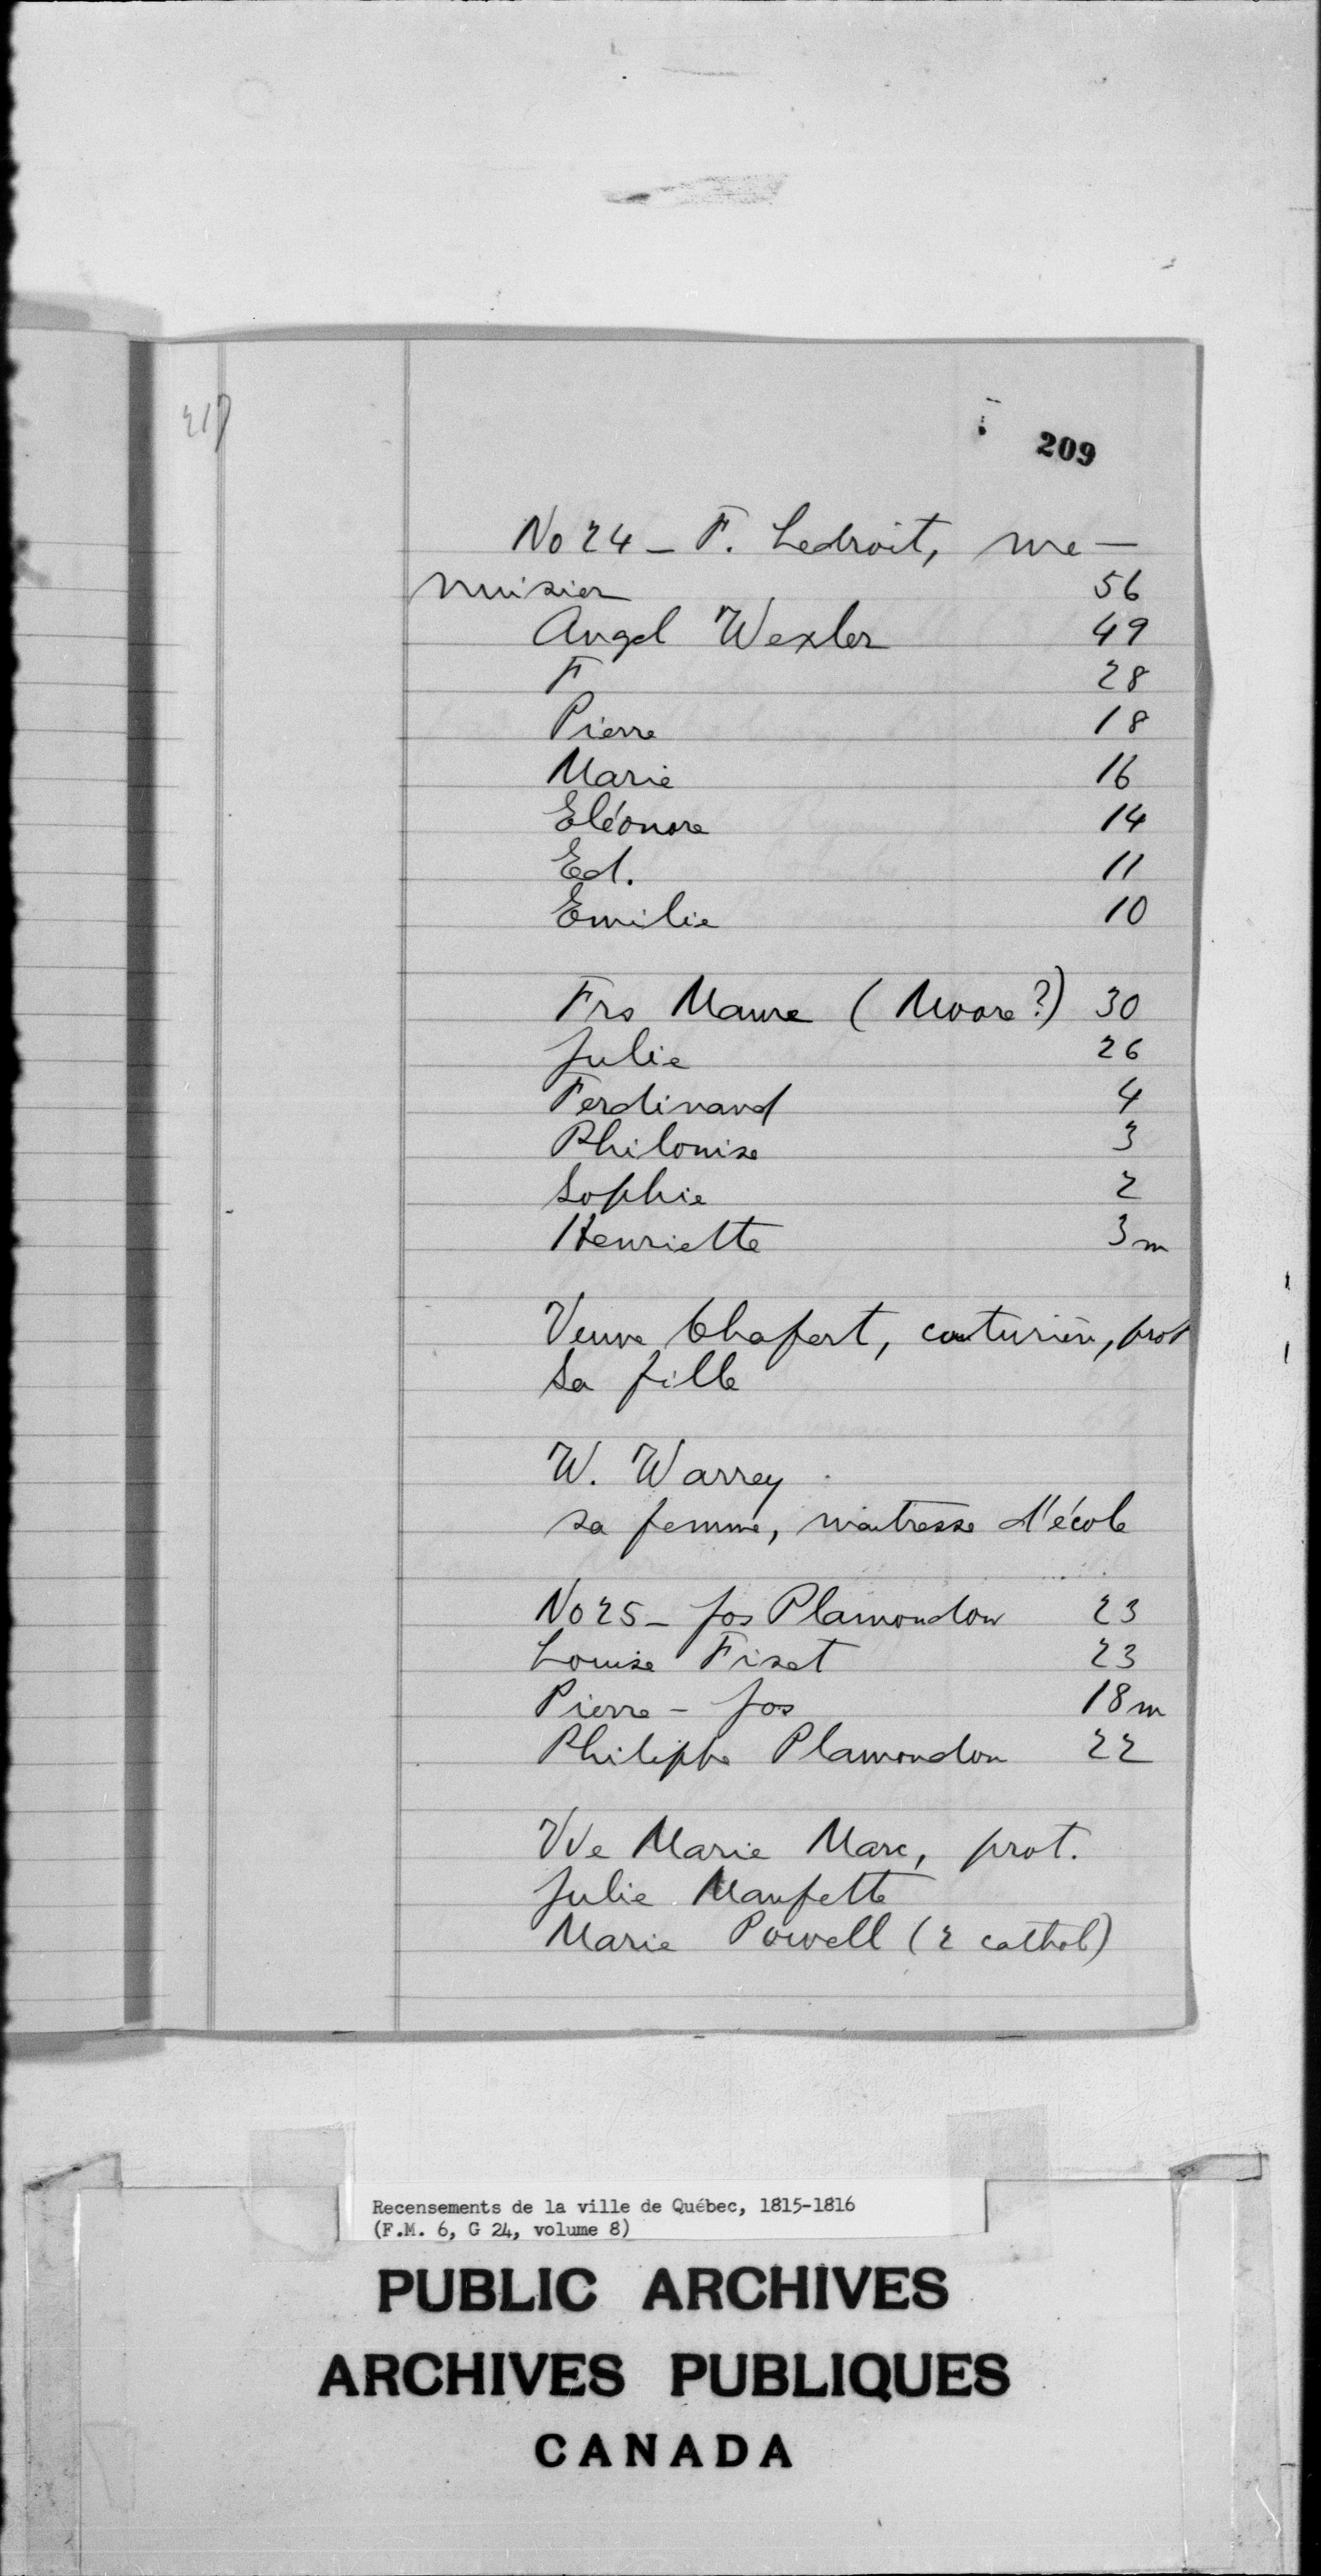 217
209
No 24 - F. Ledroit, me-
nuisier 56
Angel Wexler 49
F 28
Pierre 18
Marie 16
Eléonore 14
Ed. 11
Emilie 10
Frs Maure (Moore?) 30
Julie 26
Ferdinand 4
Philonise 3
Sophie 2
Henriette 3 m
Veuve Chafert, couturière, prot
Sa fille
W. Warrey
sa femme, maitresse d'école
No 25 - Jos Plamondon 23
Louise Fiset 23
Pierre - Jos 18 m
Philippe Plamondon 22
Vve Marie Marc, prot.
Julie Maufette
Marie Powell (2 cathol)
Recensements de la ville de Québec, 1815-1816
(F.M. 6, G 24, volume 8)
PUBLIC ARCHIVES
ARCHIVES PUBLIQUES
CANADA